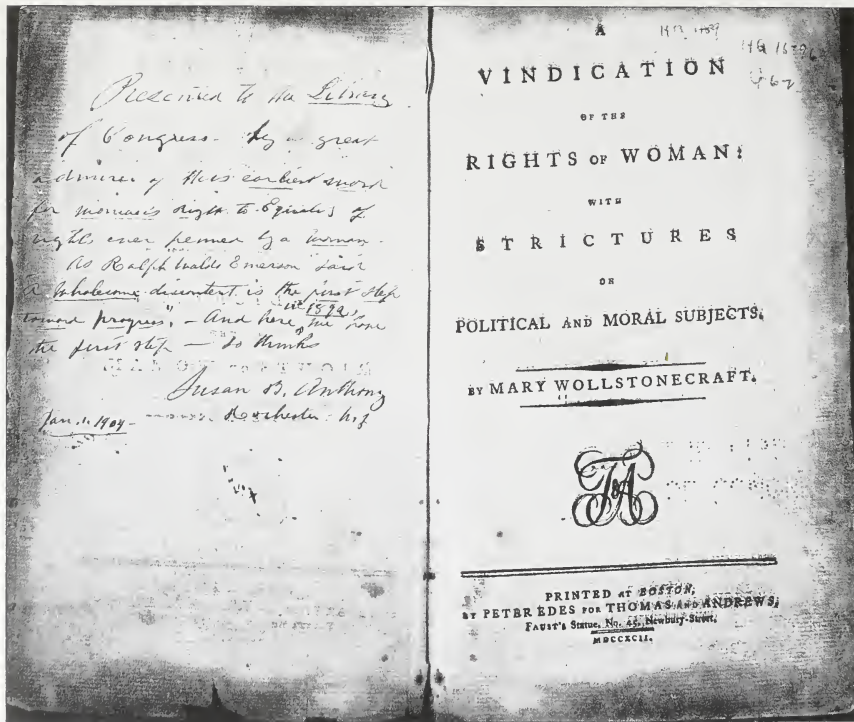 Presented to the Library
of Congress - by a great
admirer of this earliest
for woman's right to Equality of
rights ever penned by a woman.
As Ralph Waldo Emerson said
"A wholesome discontent is the first step
toward progress" - And here, in 1892, we have
the first step - so thinks
Susan B. Anthony
Jan. 1. 1904 - Rochester N.Y
A
VINDICATION
OF THE
RIGHTS OF WOMAN:
WITH
STRICTURES
ON
POLITICAL AND MORAL SUBJECTS.
BY MARY WOLLSTONECRAFT.
T&A
PRINTED AT BOSTON,
BY PETER EDES FOR THOMAS AND ANDREWS,
FAUST'S Statue, No. 45, Newbury-Street,
MDCCXCII.